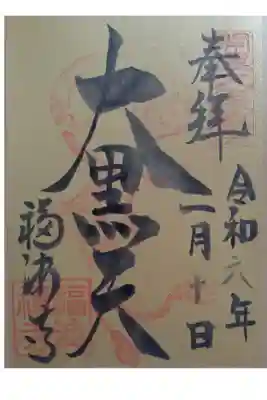 奉拝
令和六年
一月十日
大黒天
福済寺